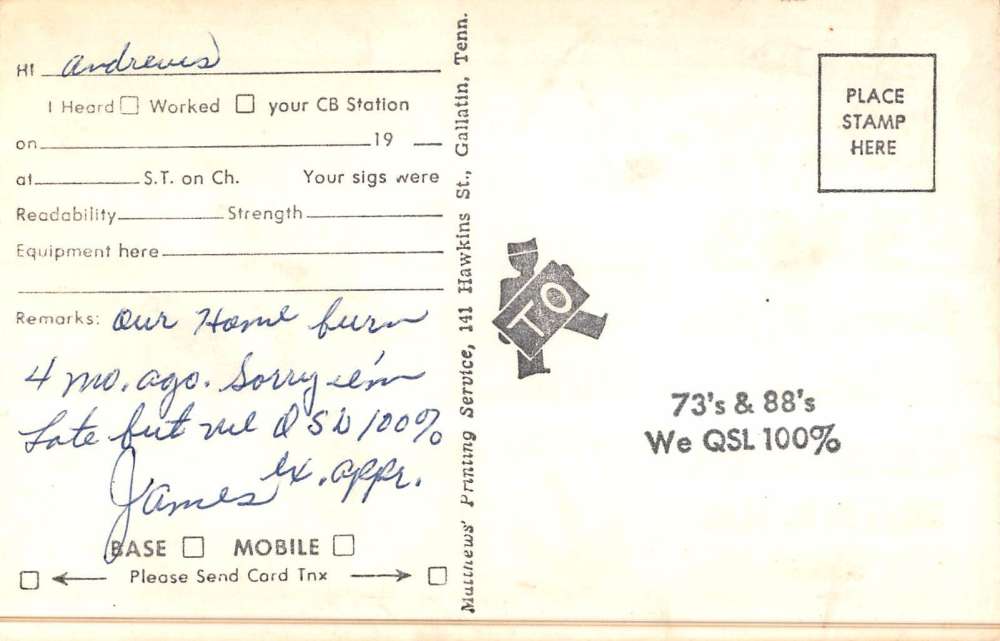 HI Andrews
I Heard Worked your CB Station
on 19
at S.T. on Ch. Your sigs were
Readability Strength
Equipment here
Remarks: Our Home burn
4 mo. ago. Sorry
Late but we QSL 100%
James
BASE MOBILE
Please Send Card Tnx
Matthews' Printing Service, 141 Hawkins St., Gallatin, Tenn.
PLACE
STAMP
HERE
TO
73's & 88's
We QSL 100%